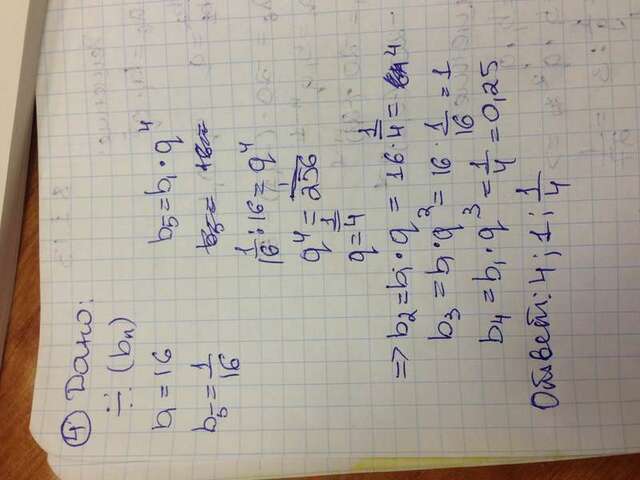 ④ Дано:
∺ (bₙ)
b₁ = 16
b₅ = b₁ · q⁴
b₅ = 1/16
1/16 : 16 = q⁴
q⁴ = 1/256
q = 1/4
=> b₂ = b₁ · q = 16 · 1/4 = 4
b₃ = b₁ · q² = 16 · 1/16 = 1
b₄ = b₁ · q³ = 1/4 = 0,25
Ответ: 4; 1; 1/4